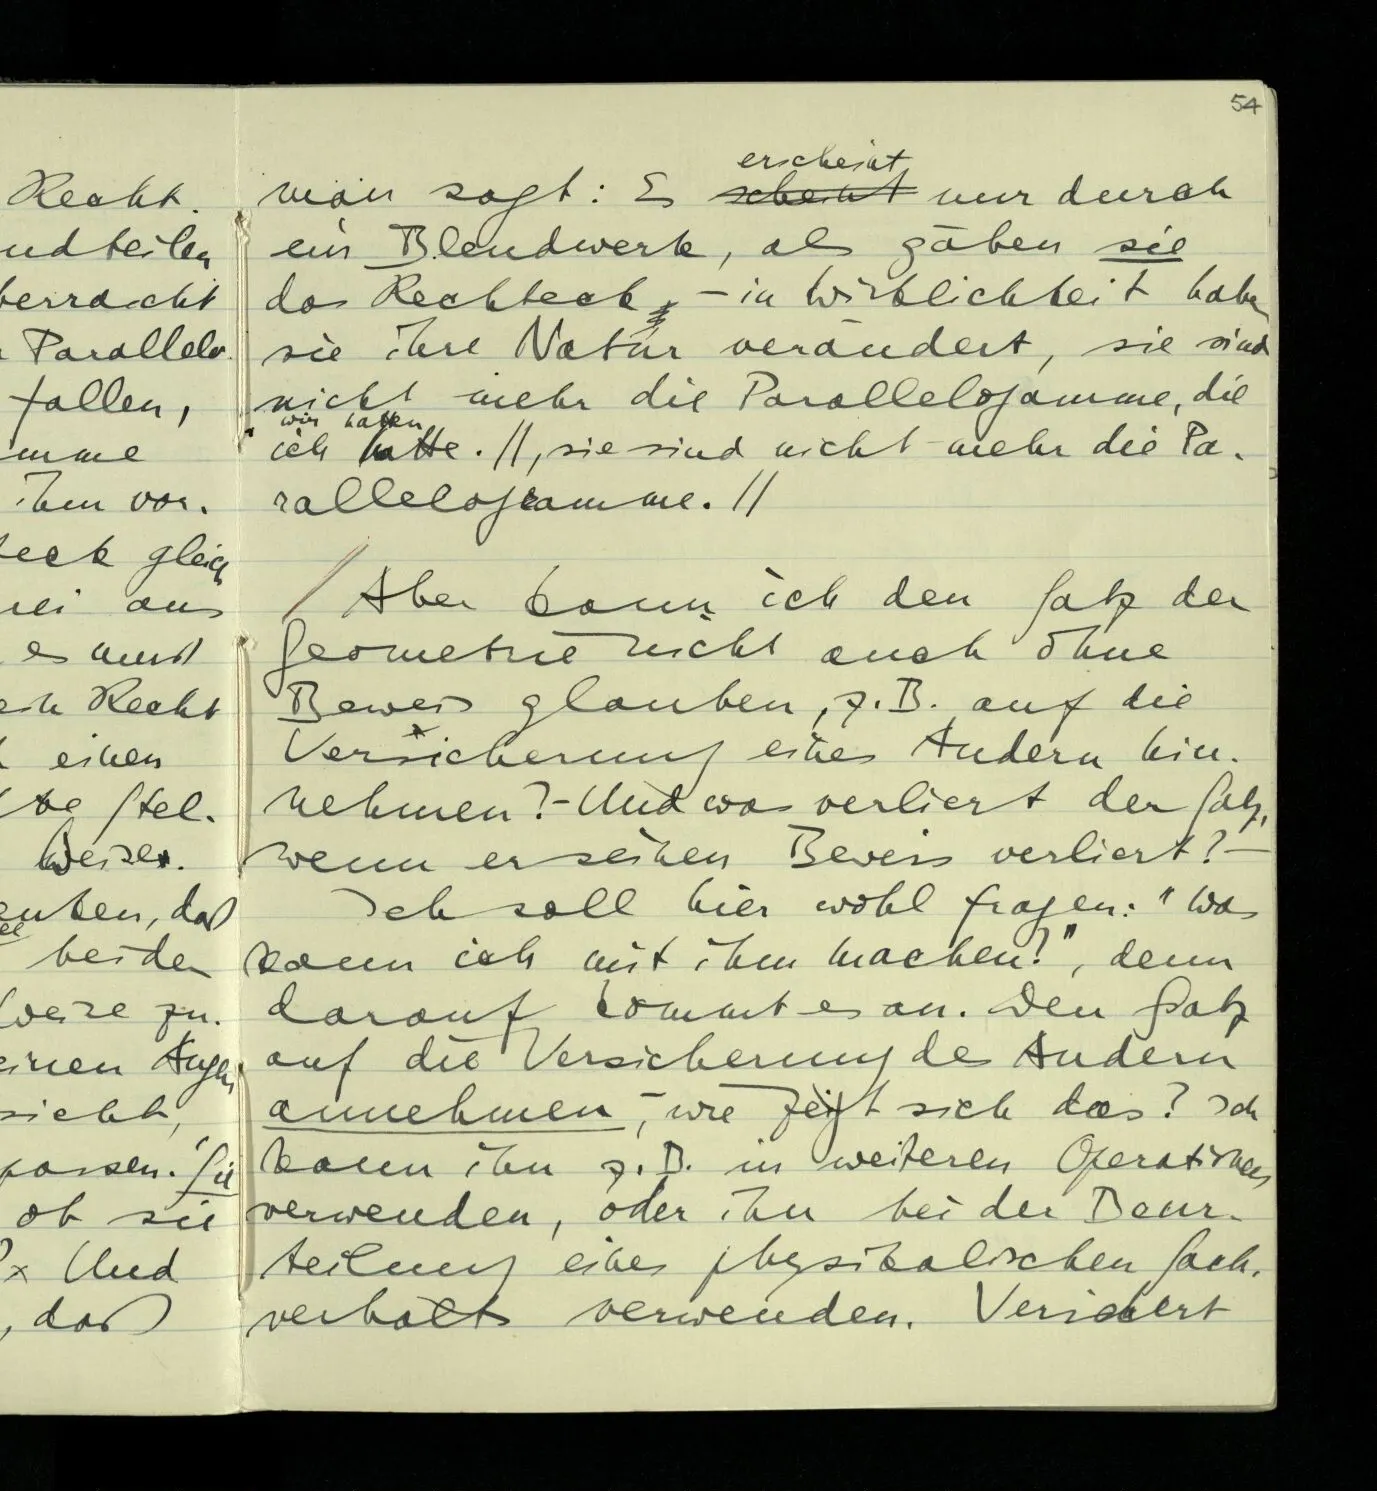 54
Recht.
ndteilen
berrascht
Parallelo
fallen,
mme
ihm vor.
teck gleich
aus
es
Recht
einen
Stel-
Weise.
daß
beiden
Weise zu.
einen Augen
sieht,
passen. Sie
ob sie
Und
, daß
erscheint
man sagt: Es scheint nur durch
ein Blendwerk, als gäben sie
das Rechteck, – in Wirklichkeit haben
sie ihre Natur verändert, sie sind
nicht mehr die Parallelogamme, die
wir hatten
ich hatte. //, sie sind nicht mehr die Pa-
rallelogramme. //
/ Aber kann ich den Satz der
Geometrie nicht auch ohne
Beweis glauben, z.B. auf die
Versicherung eines Andern hin-
nehmen? – Und was verliert der Satz,
wenn er seinen Beweis verliert? –
Ich soll hier wohl fragen: "Was
kann ich mit ihm machen?", denn
darauf kommt es an. Den Satz
auf die Versicherung des Andern
annehmen, – wie zeigt sich das? Ich
kann ihn z.B. in weiteren Operationen
verwenden, oder ihn bei der Beur-
teilung eines physikalischen Sach-
verhalts verwenden. Versichert